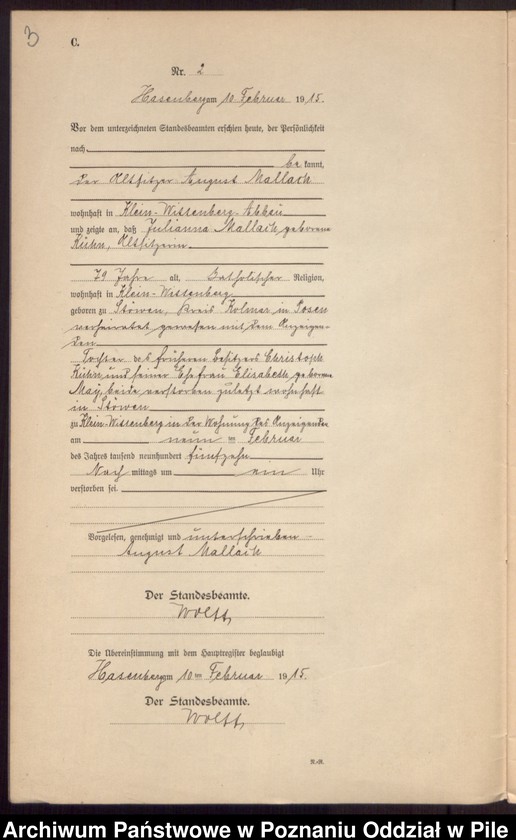 3
C.
Nr. 2
Hasenberg am 10 Februar 1915.
Vor dem unterzeichneten Standesbeamten erschien heute, der Persönlichkeit
nach
be kannt,
der Altsitzer August Mallach
wohnhaft in Klein-Wissenberg Abbau
und zeigte an, daß Julianna Mallach geborene
Kühn, Altsitzerin
79 Jahre alt, katholischer Religion,
wohnhaft in Klein-Wissenberg
geboren zu Stöwen, Kreis Kolmar in Posen
verheiratet gewesen mit dem Anzeigen-
den
Tochter des früheren Besitzers Christoph
Kühn und seiner Ehefrau Elisabeth geborene
May, beide verstorben zuletzt wohnhaft
in Stöwen
zu Klein-Wissenberg in der Wohnung des Anzeigenden
am neun ten Februar
des Jahres tausend neunhundert fünfzehn
Nach mittags um ein Uhr
verstorben sei.
Vorgelesen, genehmigt und unterschrieben
August Mallach
Der Standesbeamte.
Wolff
Die Übereinstimmung mit dem Hauptregister beglaubigt
Hasenberg am 10 ten Februar 1915.
Der Standesbeamte.
Wolff
Archiwum Państwowe w Poznaniu Oddział w Pile